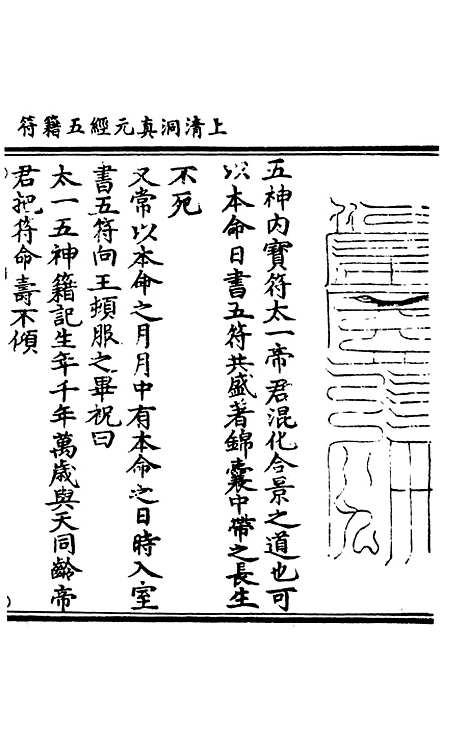 上清洞真元經五籍符
五神内寶符太一帝君混化合景之道也可
以本命日書五符共盛著錦囊中帶之長生
不死
又常以本命之月月中有本命之日時入室
書五符向王頓服之畢祝曰
太一五神籍記生年千年萬歲與天同齡帝
君把符命壽不傾